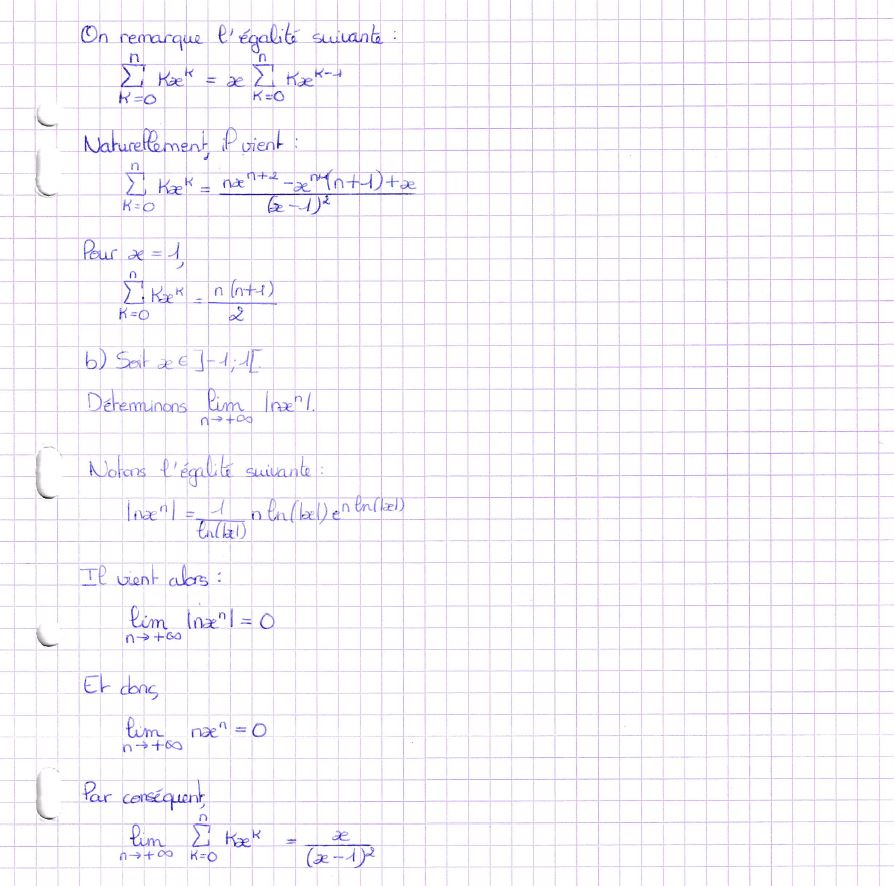 On remarque l'égalité suivante :
∑_{K=0}^{n} Kx^K = x ∑_{K=0}^{n} Kx^{K-1}
Naturellement, il vient :
∑_{K=0}^{n} Kx^K = (nx^{n+2} - x^{n+1}(n+1) + x) / (x-1)^2
Pour x = 1,
∑_{K=0}^{n} Kx^K = n(n+1) / 2
b) Soit x ∈ ]-1; 1[.
Déterminons lim_{n→+∞} |nx^n|.
Notons l'égalité suivante :
|nx^n| = 1/ln(|x|) n ln(|x|) e^{n ln(|x|)}
Il vient alors :
lim_{n→+∞} |nx^n| = 0
Et donc,
lim_{n→+∞} nx^n = 0
Par conséquent,
lim_{n→+∞} ∑_{K=0}^{n} Kx^K = x / (x-1)^2